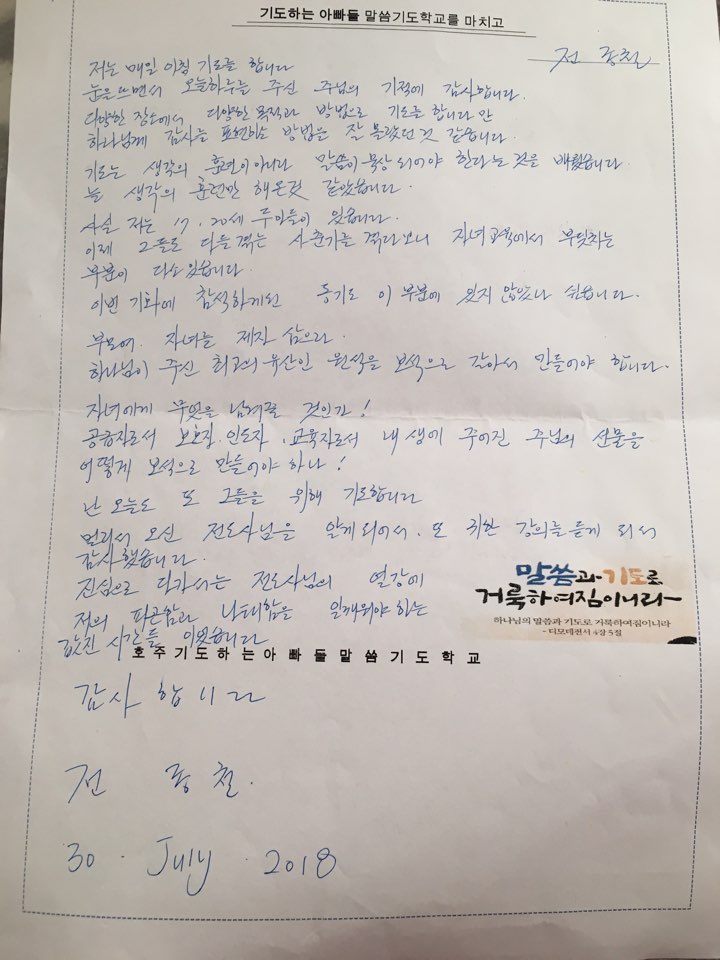 기도하는 아빠들 말씀기도학교를 마치고
전 종철
저는 매일 아침 기도를 합니다
눈을 뜨면서 오늘하루를 주신 주님의 기적에 감사합니다.
다양한 장소에서 다양한 목적과 방법으로 기도를 합니다 만
하나님께 감사를 표현하는 방법은 잘 몰랐던 것 같습니다.
기도는 생각의 훈련이 아니라 말씀이 묵상 되어야 한다는 것을 배웠습니다.
늘 생각의 훈련만 해온것 같았습니다.
사실 저는 17, 20세 두아들이 있습니다.
이제 그들도 다들 겪는 사춘기를 겪다보니 자녀교육에서 부딪치는
부분이 다소 있습니다.
이번 기회에 참석하게된 동기도 이 부분에 있지 않았나 싶습니다.
부모여. 자녀를 제자 삼으라.
하나님이 주신 최고의 유산인 원석을 보석으로 갈아서 만들어야 합니다.
자녀에게 무엇을 남겨줄 것인가!
공급자로서 보호자. 인도자, 교육자로서 내 생에 주어진 주님의 선물을
어떻게 보석으로 만들어야 하나!
난 오늘도 또 그들을 위해 기도합니다
멀리서 오신 전도사님을 알게 되어서. 또 귀한 강의를 듣게 되서
감사했습니다.
진심으로 다가서는 전도사님의 열강에
저의 피곤함과 나태함을 일깨워야 하는
값진 시간들 이였습니다
말씀과 기도로
거룩하여짐이니라~
하나님의 말씀과 기도로 거룩하여짐이니라
- 디모데전서 4장 5절
호주기도하는아빠들말씀기도학교
감사 합니다
전 종철.
30. July. 2018